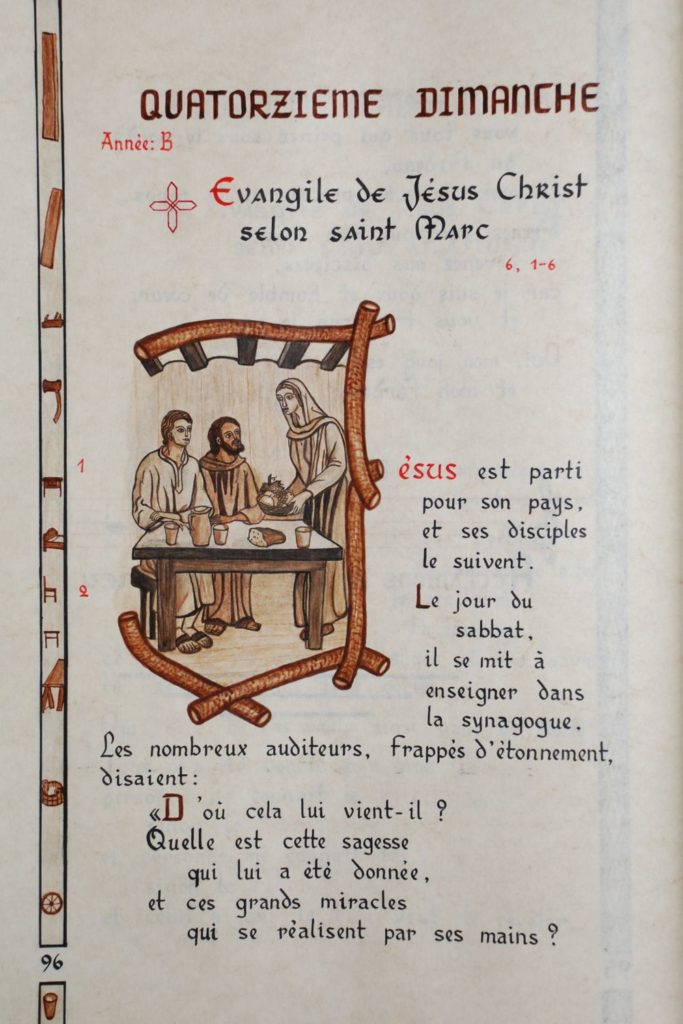 QUATORZIEME DIMANCHE
Année: B
Evangile de Jésus Christ
selon saint Marc
6, 1-6
1 Jésus est parti
pour son pays,
et ses disciples
le suivent.
2 Le jour du
sabbat,
il se mit à
enseigner dans
la synagogue.
Les nombreux auditeurs, frappés d'étonnement,
disaient :
«D'où cela lui vient-il ?
Quelle est cette sagesse
qui lui a été donnée,
et ces grands miracles
qui se réalisent par ses mains ?
96